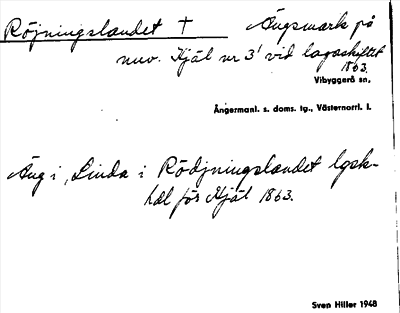 Röjningslandet † Ängsmark på
nuv. Kjäl nr 3¹ vid lagaskiftet
1863.
Vibyggerå sn,
Ångermanl. s. doms. tg., Västernorrl. l.
Äng i, Linda i Rödjningslandet lgsk-
hdl för Kjäl 1863.
Sven Hiller 1948